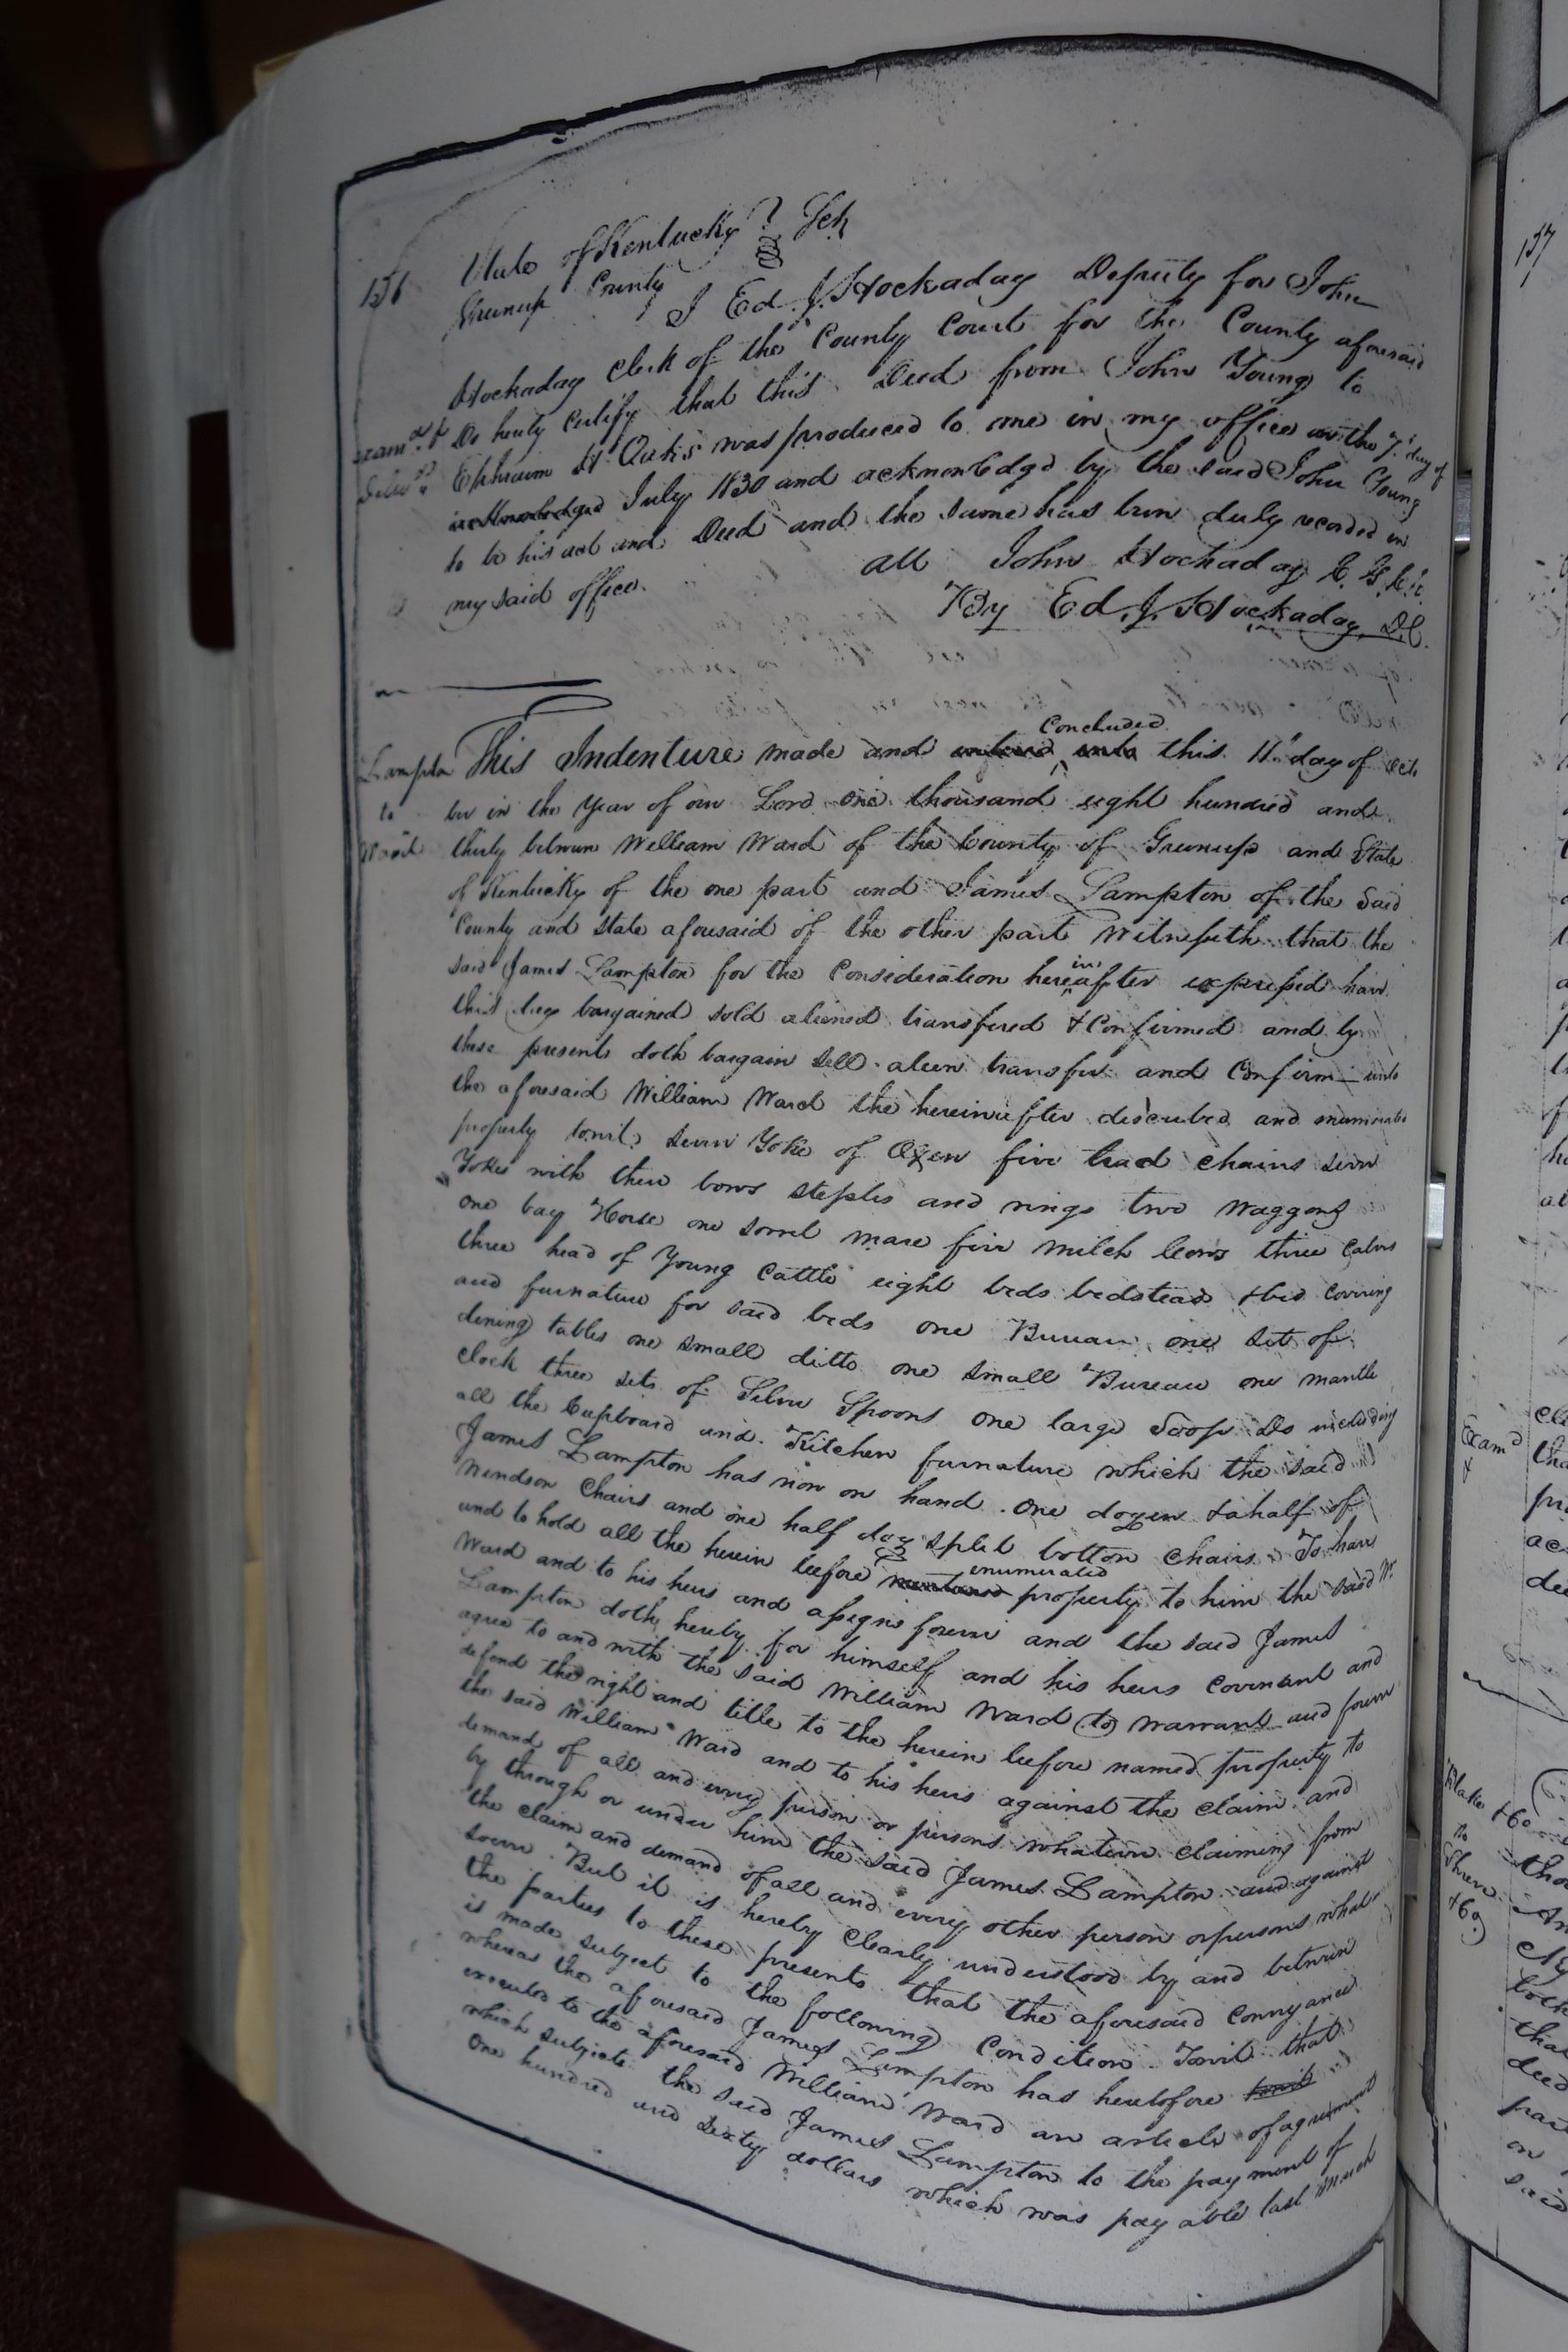 156
State of Kentucky } Sct
Greenup County }
I Ed. J. Hockaday Deputy for John
Hockaday Clerk of the County Court for the County aforesaid
Do herby Certify that this Deed from John Young to
Ephraim H Oaks was produced to me in my office on the 7th day of
acknowledged July 1830 and acknowledgd by the said John Young
to be his act and Deed and the same has been duly recorded in
my said office.
att John Hockaday C. G. C. C.
By Ed. J. Hockaday D.C.
Lampton
to
Ward
This Indenture made and entered into Concluded this 11th day of Octo
ber in the Year of our Lord one thousand eight hundred and
thirty between William Ward of the County of Greenup and State
of Kentucky of the one part and James Lampton of the said
County and state aforesaid of the other part Witnesseth that the
said James Lampton for the Consideration hereinafter expressed have
this day bargained sold aliened transfered & Confirmed and by
these presents doth bargain sell alien transfer and Confirm unto
the aforesaid William Ward the hereinafter described and enumerated
property towit, seven Yoke of Oxen five trad chains seven
Yokes with their bows steples and rings two waggons
one bay Horse one sorrel mare five milch Cows three Calves
three head of Young Cattle eight beds bedsteads & bed Covering
and furnature for said beds one Bureau one set of
dining tables one small ditto one small Bureau one mantle
Clock three sets of Silver Spoons one large Soop Do including
all the Cupboard and Kitchen furnature which the said
James Lampton has now on hand. one dozen & a half of
Windsor Chairs and one half doz split bottom chairs. To have
and to hold all the herein before mentioned enumerated property to him the said Wm
Ward and to his heirs and assigns forever and the said James
Lampton doth hereby for himself and his heirs Covenant and
agree to and with the said William Ward (to) warrant and forever
defend the right and title to the herein before named property to
the said William Ward and to his heirs against the Claim and
demand of all and every person or persons whatever claiming from
by through or under him the said James Lampton and against
the claim and demand of all and every other person or persons what
soever. But it is hereby Clearly understood by and between
the parties to these presents that the aforesaid Conveyance
is made subject to the following Condition. Towit that
whereas the aforesaid James Lampton has heretofore towit
executed to the aforesaid William Ward an article of agreement
which subjects the said James Lampton to the payment of
One hundred and sixty dollars which was payable last
157
Exam'd
Blake &Co
to